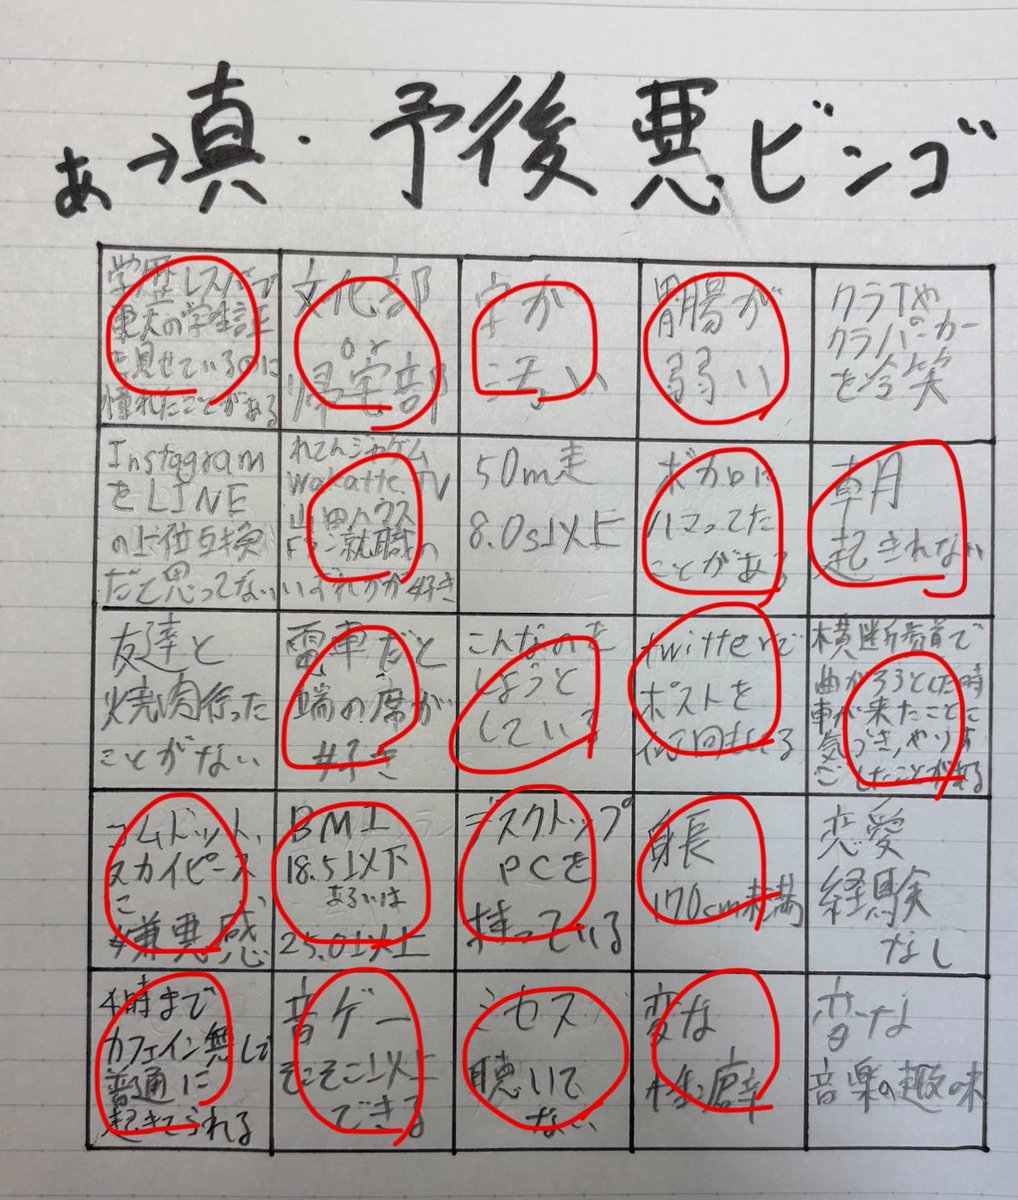 あっ→真・予後悪ビンゴ
学歴レスバで
東大の学生証
を見せているのに
憧れたことがある
文化部
or
帰宅部
字が
汚い
胃腸が
弱い
クラTや
クラパーカー
を冷笑
Instagram
をLINE
の上位互換
だと思ってない
wakatte.TV
山田ハウス
ドラゴン就職の
いずれかが好き
50m走
8.0s以上
ボカロに
ハマってた
ことがある
朝
起きれない
友達と
焼肉行った
ことがない
電車だと
端の席が
好き
こんなのを
しようと
している
twitterで
ポストを
何回もしてる
横断歩道で
曲がろうとした時
車が来たことに
気づき、やりす
ごしたことがある
コムドット、
スカイピース
に
嫌悪感
BMI
18.5以下
あるいは
25.0以上
デスクトップ
PCを
持っている
身長
170cm未満
恋愛
経験
なし
4時まで
カフェイン無しで
普通に
起きてられる
音ゲー
そこそこ以上
できる
ミセス
聴いて
ない
変な
性癖
変な
音楽の趣味